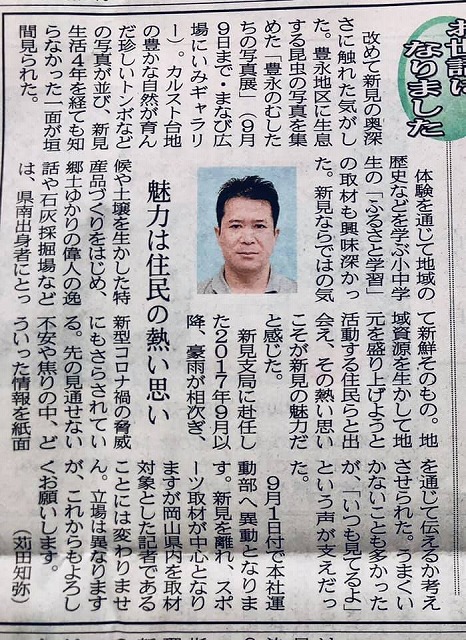 お世話に
なりました
改めて新見の奥深
さに触れた気がし
た。豊永地区に生息
する昆虫の写真を集
めた「豊永のむした
ちの写真展」（9月
9日まで・まなび広
場にいみギャラリ
ー）。カルスト台地
の豊かな自然が育ん
だ珍しいトンボなど
の写真が並び、新見
生活4年を経ても知
らなかった一面が垣
間見られた。
体験を通じて地域の
歴史などを学ぶ小中学
生の「ふるさと学習」
の取材も興味深かっ
た。新見ならではの気
魅力は住民の熱い思い
候や土壌を生かした特
産品づくりをはじめ、
郷土ゆかりの偉人の逸
話や石灰採掘場など
は、県南出身者にとっ
て新鮮そのもの。地
域資源を生かして地
元を盛り上げようと
活動する住民らと出
会え、その熱い思い
こそが新見の魅力だ
と感じた。
新見支局に赴任し
た2017年9月以
降、豪雨が相次ぎ、
新型コロナ禍の脅威
にもさらされてい
る。先の見通せない
不安や焦りの中、ど
ういった情報を紙面
を通じて伝えるか考え
させられた。うまくい
かないことも多かった
が、「いつも見てるよ」
という声が支えだっ
た。
9月1日付で本社運
動部へ異動となりま
す。新見を離れ、スポ
ーツ取材が中心となり
ますが岡山県内を取材
対象とした記者である
ことには変わりませ
ん。立場は異なります
が、これからもよろし
くお願いします。
（苅田知弥）